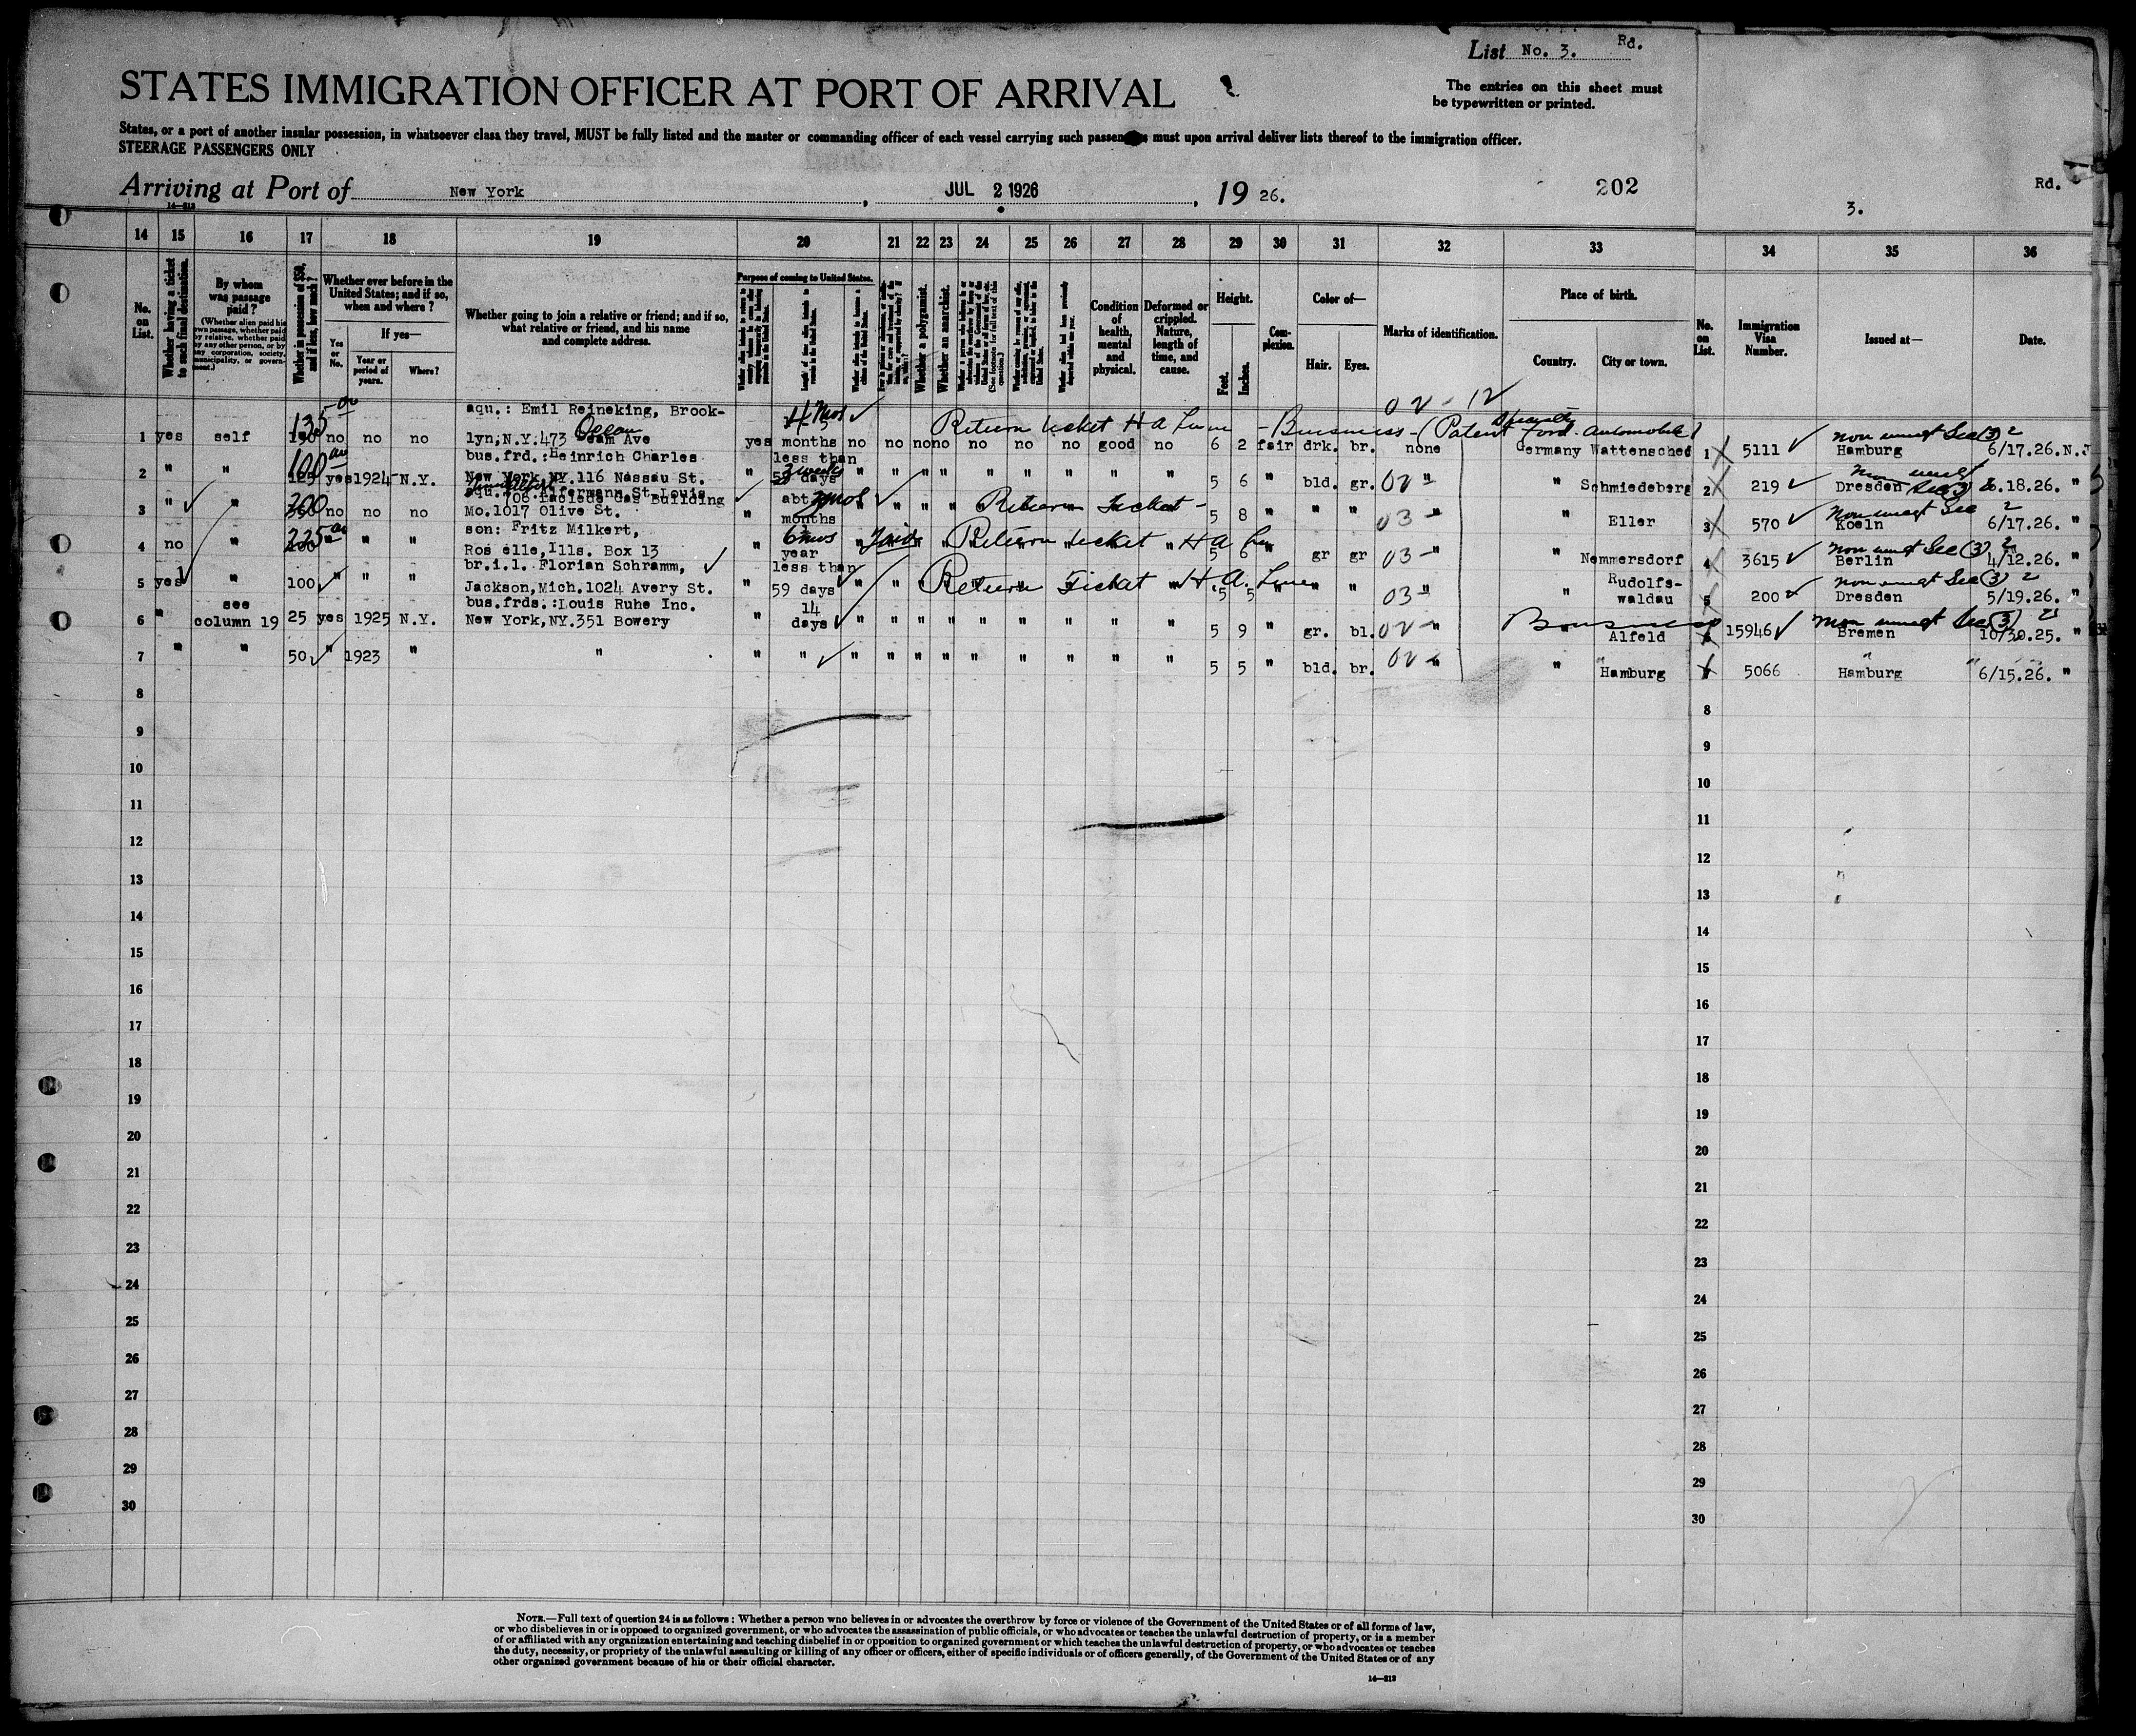 List No. 3. Rd.
STATES IMMIGRATION OFFICER AT PORT OF ARRIVAL
The entries on this sheet must
be typewritten or printed.
States, or a port of another insular possession, in whatsoever class they travel, MUST be fully listed and the master or commanding officer of each vessel carrying such passengers must upon arrival deliver lists thereof to the immigration officer.
STEERAGE PASSENGERS ONLY
Arriving at Port of New York, JUL 2 1926, 19 26. 202
3. Rd.
14—213
14 15 16 17 18 19 20 21 22 23 24 25 26 27 28 29 30 31 32 33 34 35 36
No. on List.
Whether having a ticket to such final destination.
By whom was passage paid?
(Whether alien paid his own passage, whether paid by relative, whether paid by any other person, or by any corporation, society, municipality, or government.)
Whether in possession of $50, and if less, how much?
Whether ever before in the United States; and if so, when and where?
Yes or No.
If yes—
Year or period of years.
Where?
Whether going to join a relative or friend; and if so, what relative or friend, and his name and complete address.
Purpose of coming to United States.
Length of time alien intends to remain in the United States.
Whether a polygamist.
Whether an anarchist.
(See footnote for full text of this question.)
Condition of health, mental and physical.
Deformed or crippled. Nature, length of time, and cause.
Height.
Feet.
Inches.
Complexion.
Color of—
Hair.
Eyes.
Marks of identification.
Place of birth.
Country.
City or town.
No. on List.
Immigration Visa Number.
Issued at—
Date.
aqu.: Emil Reineking, Brook- 4 mos 02-12
135 00 Ocean Return ticket H A Line - Business - (Patent Ford. Automobile)
1 yes self no no no lyn,N.Y.473 Ave yes months no no no no no no no good no 6 2 fair drk. br. none Germany Wattensched 1 5111 Hamburg 6/17.26.N.
bus.frd.:Heinrich Charles less than
2 " " 100 yes 1924 N.Y. New York,NY.116 Nassau St. " 3 weeks days " " " " " " " " " 5 6 " bld. gr. 02 " " Schmiedeberg 2 219 Dresden .18.26. "
706 Laclede Gas Building
3 " " 200 no no no Mo.1017 Olive St. " abt months " " " " Return ticket - 5 8 " " " 03 " " Eller 3 570 Koeln 6/17.26. "
son: Fritz Milkert, 6 mos
4 no " 225 " " " Roselle,Ills. Box 13 " year " Return ticket H A Line 5 6 gr gr 03 " " Nemmersdorf 4 3615 Berlin 4/12.26. "
br.i.l. Florian Schramm, less than
5 yes " 100 " " " Jackson,Mich.1024 Avery St. " 59 days " " " Return Ticket H. A. Line 5 5 " " " 03 " " Rudolfs-
waldau 5 200 Dresden 5/19.26. "
see bus.frds.:Louis Ruhe Inc. 14
6 " column 19 25 yes 1925 N.Y. New York,NY.351 Bowery " days " " " " " " " " " 5 9 " gr. bl. 02 " Business Alfeld 6 15946 Bremen 10/30.25. "
7 " " 50 " 1923 " " " " " " " " " " " " " 5 5 " bld. br. 02 " " Hamburg 7 5066 Hamburg 6/15.26. "
8 8
9 9
10 10
11 11
12 12
13 13
14 14
15 15
16 16
17 17
18 18
19 19
20 20
21 21
22 22
23 23
24 24
25 25
26 26
27 27
28 28
29 29
30 30
NOTE.—Full text of question 24 is as follows: Whether a person who believes in or advocates the overthrow by force or violence of the Government of the United States or of all forms of law,
or who disbelieves in or is opposed to organized government, or who advocates the assassination of public officials, or who advocates or teaches the unlawful destruction of property, or is a member
of or affiliated with any organization entertaining and teaching disbelief in or opposition to organized government or which teaches the unlawful destruction of property, or who advocates or teaches
the duty, necessity, or propriety of the unlawful assaulting or killing of any officer or officers, either of specific individuals or of officers generally, of the Government of the United States or of any
other organized government because of his or their official character.
14—213